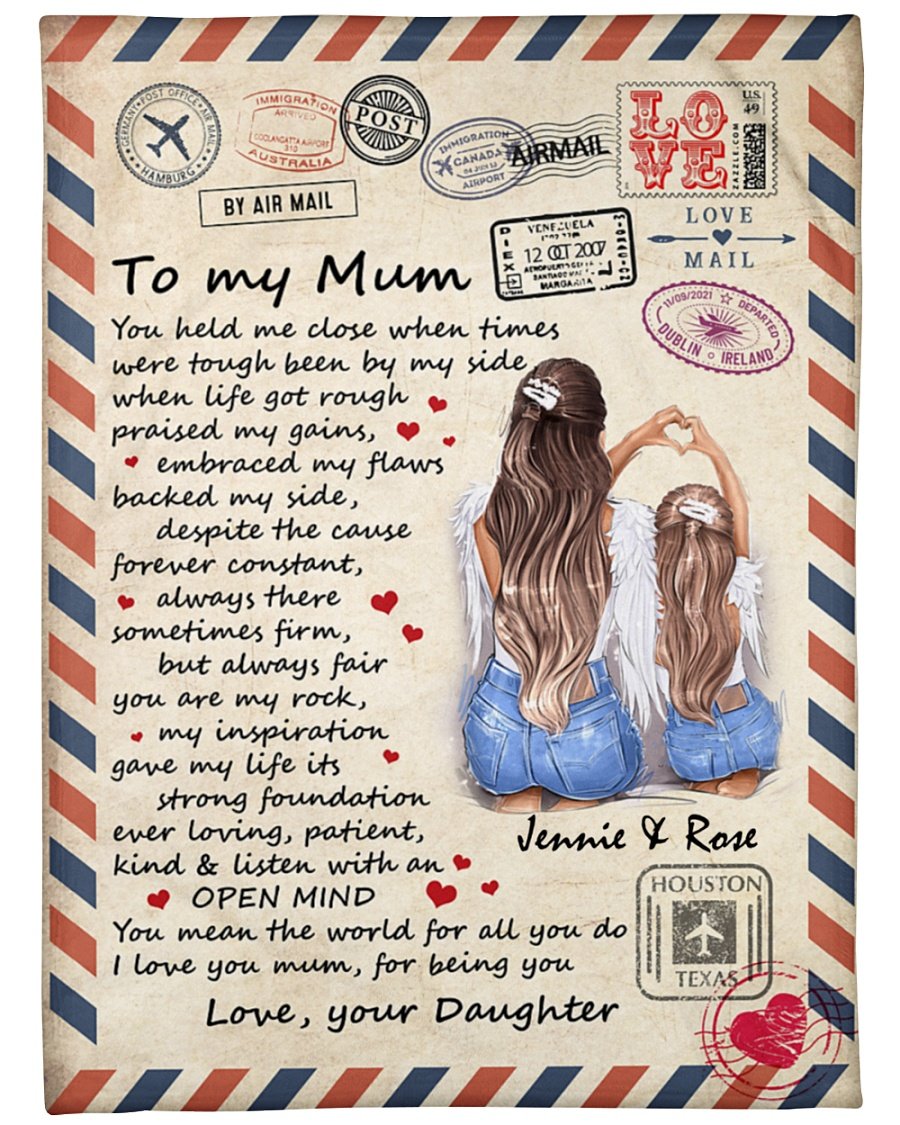 GERMANY • POST OFFICE • AIR MAIL
HAMBURG
IMMIGRATION
ARRIVED
COOLANGATTA AIRPORT
310
AUSTRALIA
POST
IMMIGRATION
CANADA
AIRPORT
AIRMAIL
LOVE
U.S.
49
ZAZZLE.COM
BY AIR MAIL
LOVE
MAIL
VENEZUELA
12 OCT 2007
MARGARITA
11/09/2021 DEPARTED
DUBLIN IRELAND
To my Mum
You held me close when times
were tough been by my side
when life got rough
praised my gains,
embraced my flaws
backed my side,
despite the cause
forever constant,
always there
sometimes firm,
but always fair
you are my rock,
my inspiration
gave my life its
strong foundation
ever loving, patient,
kind & listen with an
OPEN MIND
You mean the world for all you do
I love you mum, for being you
Love, your Daughter
Jennie & Rose
HOUSTON
TEXAS